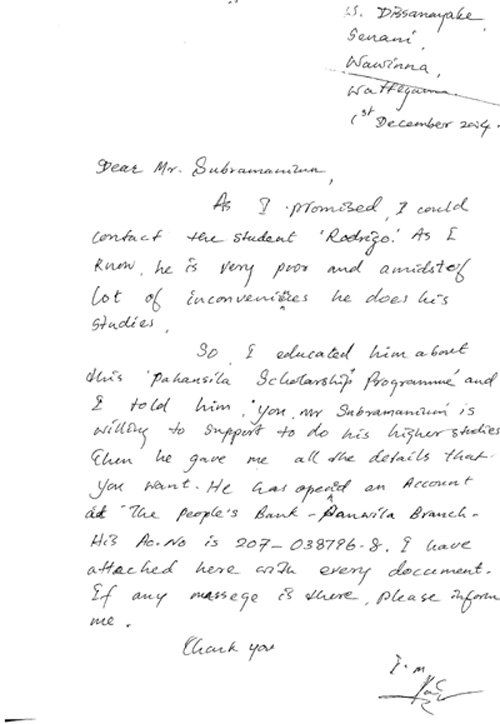 S. Dissanayake,
Senani,
Wawinna,
Wattegama.
1st December 2004.
Dear Mr. Subramanium,
As I promised, I could
contact the student 'Rodrigo.' As I
know, he is very poor and amidst of
lot of inconveniences he does his
studies.
So, I educated him about
this 'Pahansila Scholarship Programme' and
I told him, 'you, Mr Subramanium is
willing to support to do his higher studies
Then he gave me all the details that
you want. He has opened an Account
at 'The People's Bank - Panwila Branch -
His Ac. No is 207-038796-8. I have
attached here with every document.
If any massege is there, please inform
me.
Thank you
I. m